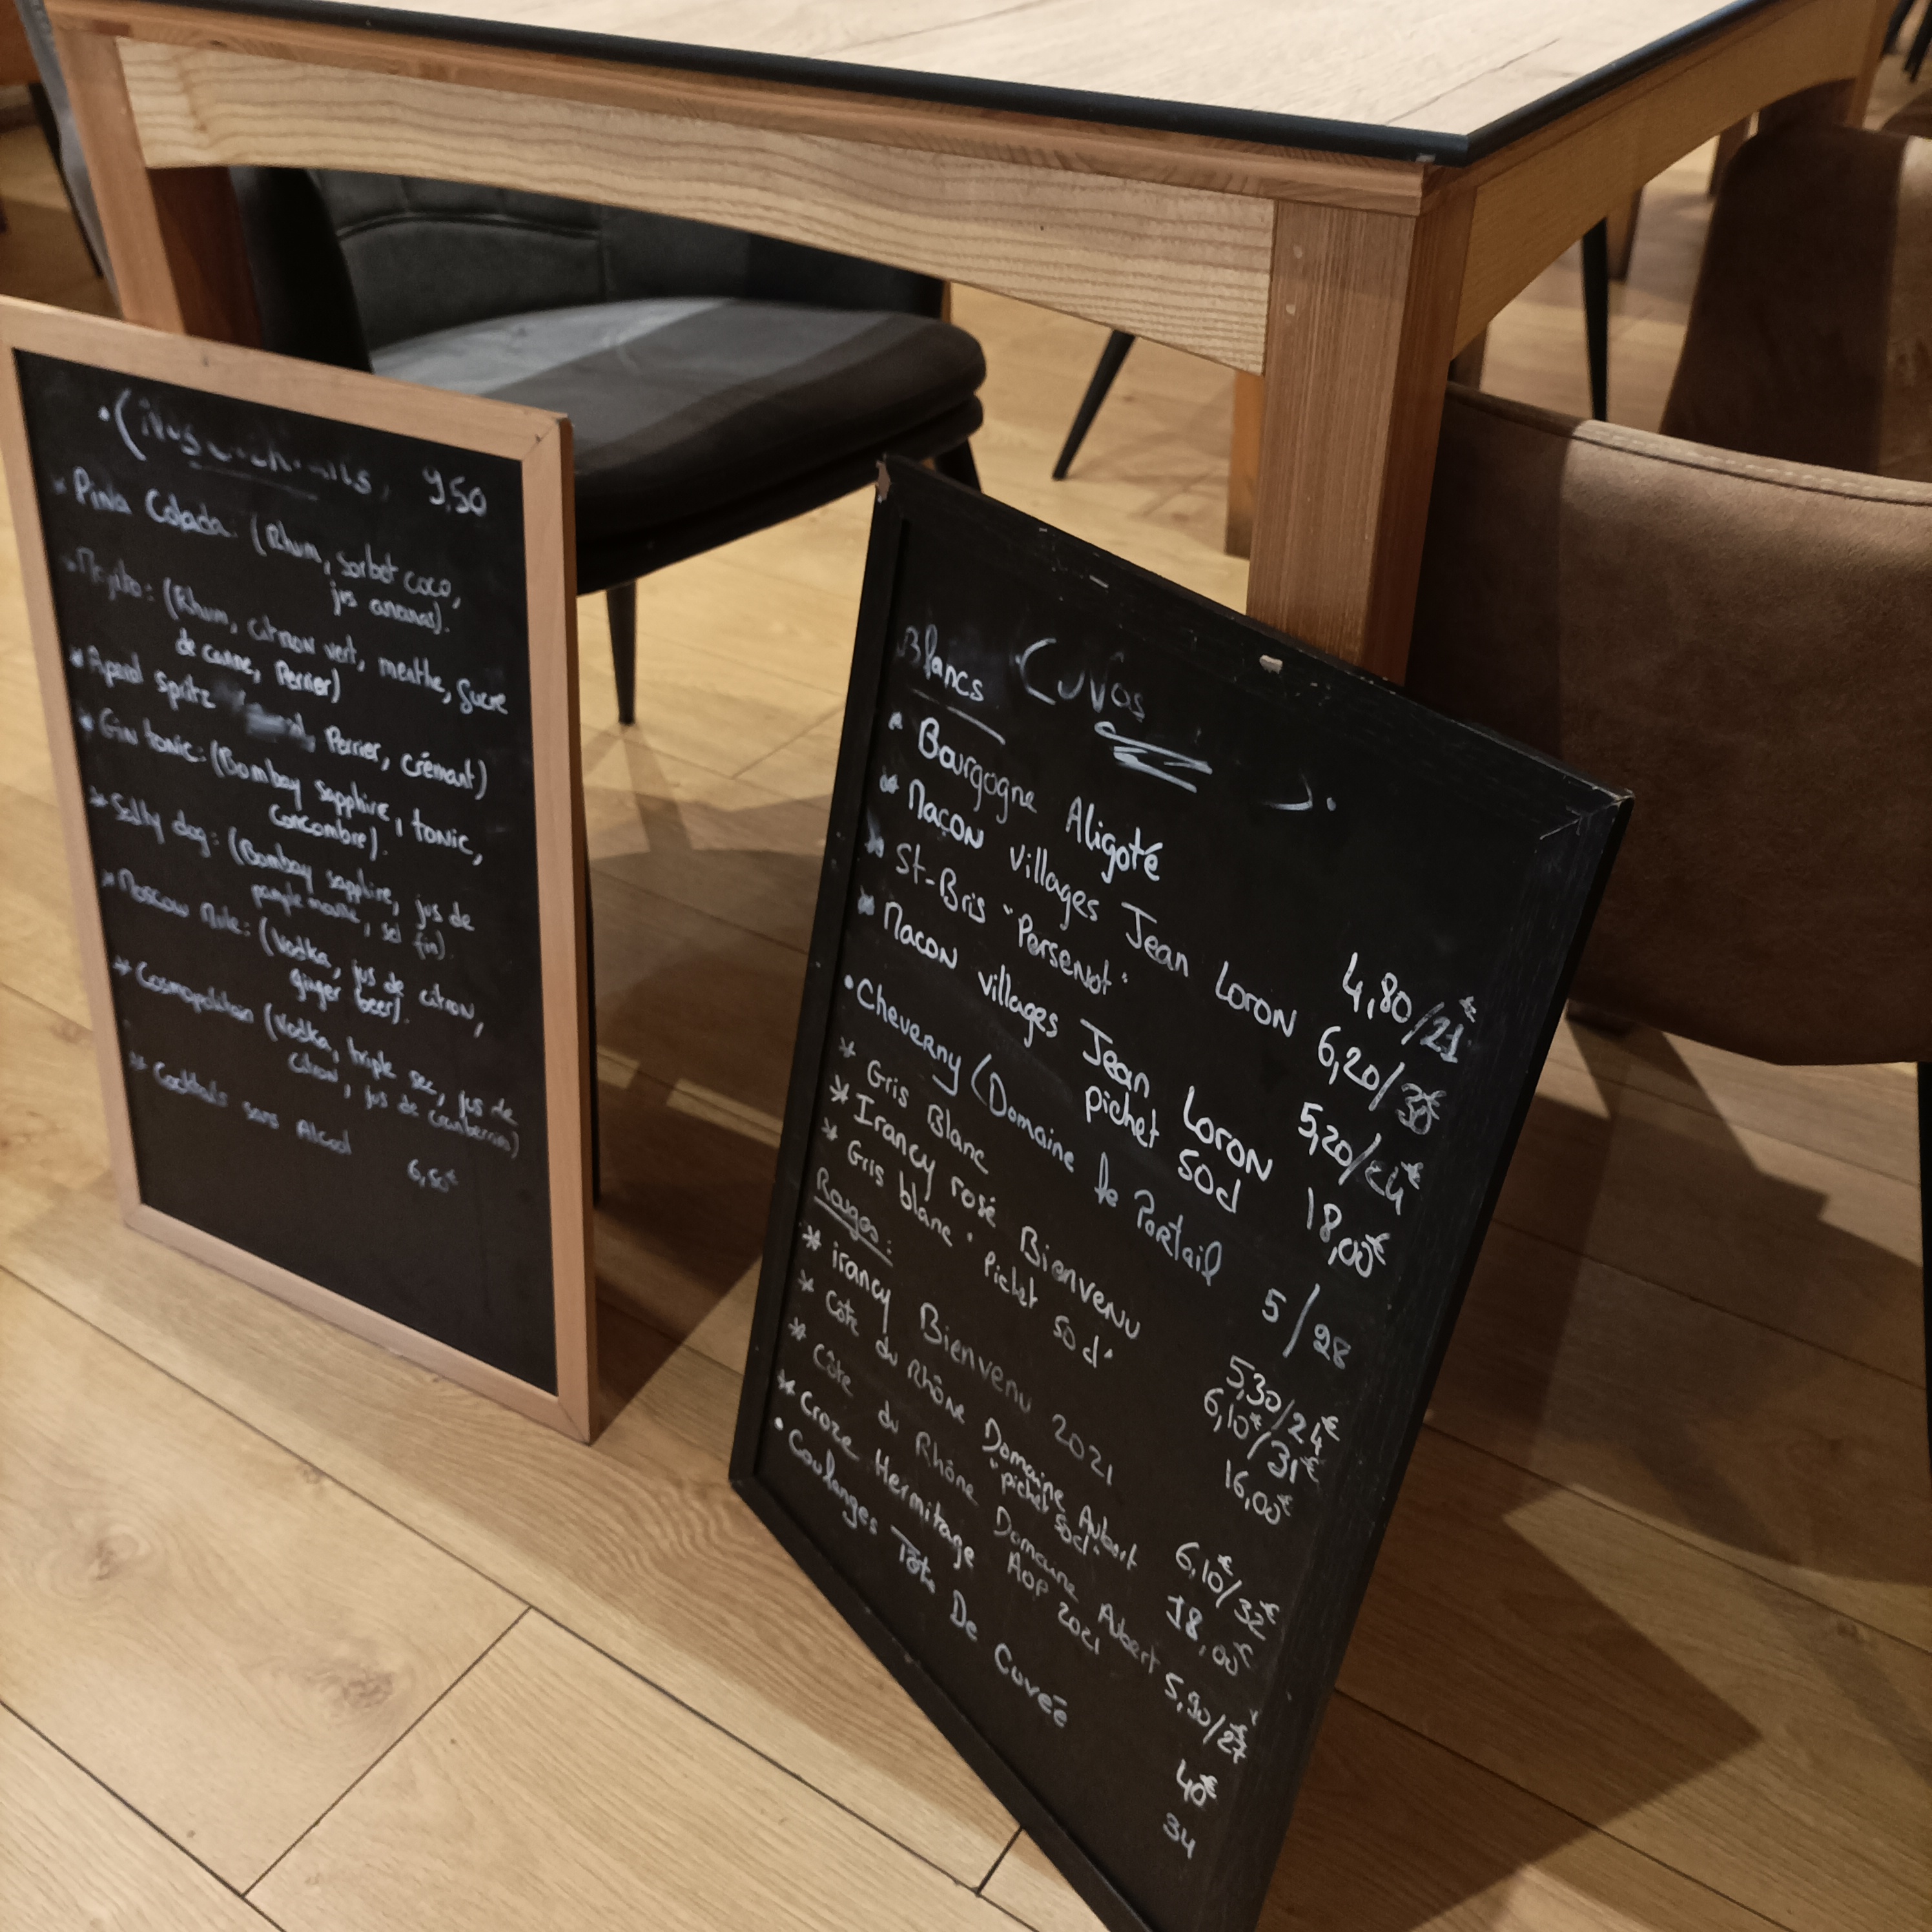 Nos 9,50
* Pina Colada: (Rhum, sorbet coco,
jus ananas).
* Mojito: (Rhum, citron vert, menthe, sucre
de canne, Perrier)
* Aperol spritz Perrier, crémant)
* Gin tonic: (Bombay sapphire, tonic,
Concombre).
* Salty dog: (Bombay sapphire, jus de
pamplemousse, sel fin).
* Moscow Mule: (Vodka, jus de citron,
ginger beer).
* Cosmopolitan (Vodka, triple sec, jus de
citron, jus de cranberries)
* Cocktails sans Alcool 6,50€
Blancs
* Bourgogne Aligoté 4,80/21€
* Macon villages Jean Loron 6,20/30€
* St-Bris "Persenot" 5,20/24€
* Macon villages Jean Loron 18,00€
pichet 50cl
• Cheverny (Domaine le Portail 5/28
* Gris Blanc 5,30/24€
* Irancy rosé Bienvenu 6,10€/31€
* Gris blanc "Pichet 50cl" 16,00€
Rouges:
* irancy Bienvenu 2021 6,10€/32€
* Côte du Rhône Domaine Aubert 18,00€
"pichet 50cl"
* Côte du Rhône Domaine Aubert 5,90/27€
* Croze Hermitage AOP 2021 40€
• Coulanges De Cuvée 34